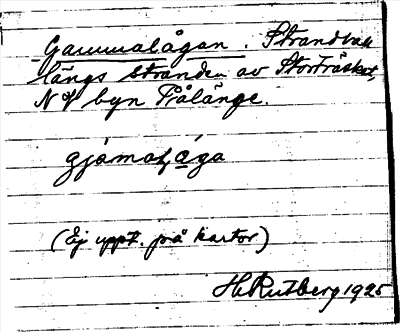 Gammalågan. Strandvall
längs stranden av Storträsket,
N of byn Prålänge.
gjámaḷå̀ga
(Ej uppt. på kartor)
H. Rutberg 1925